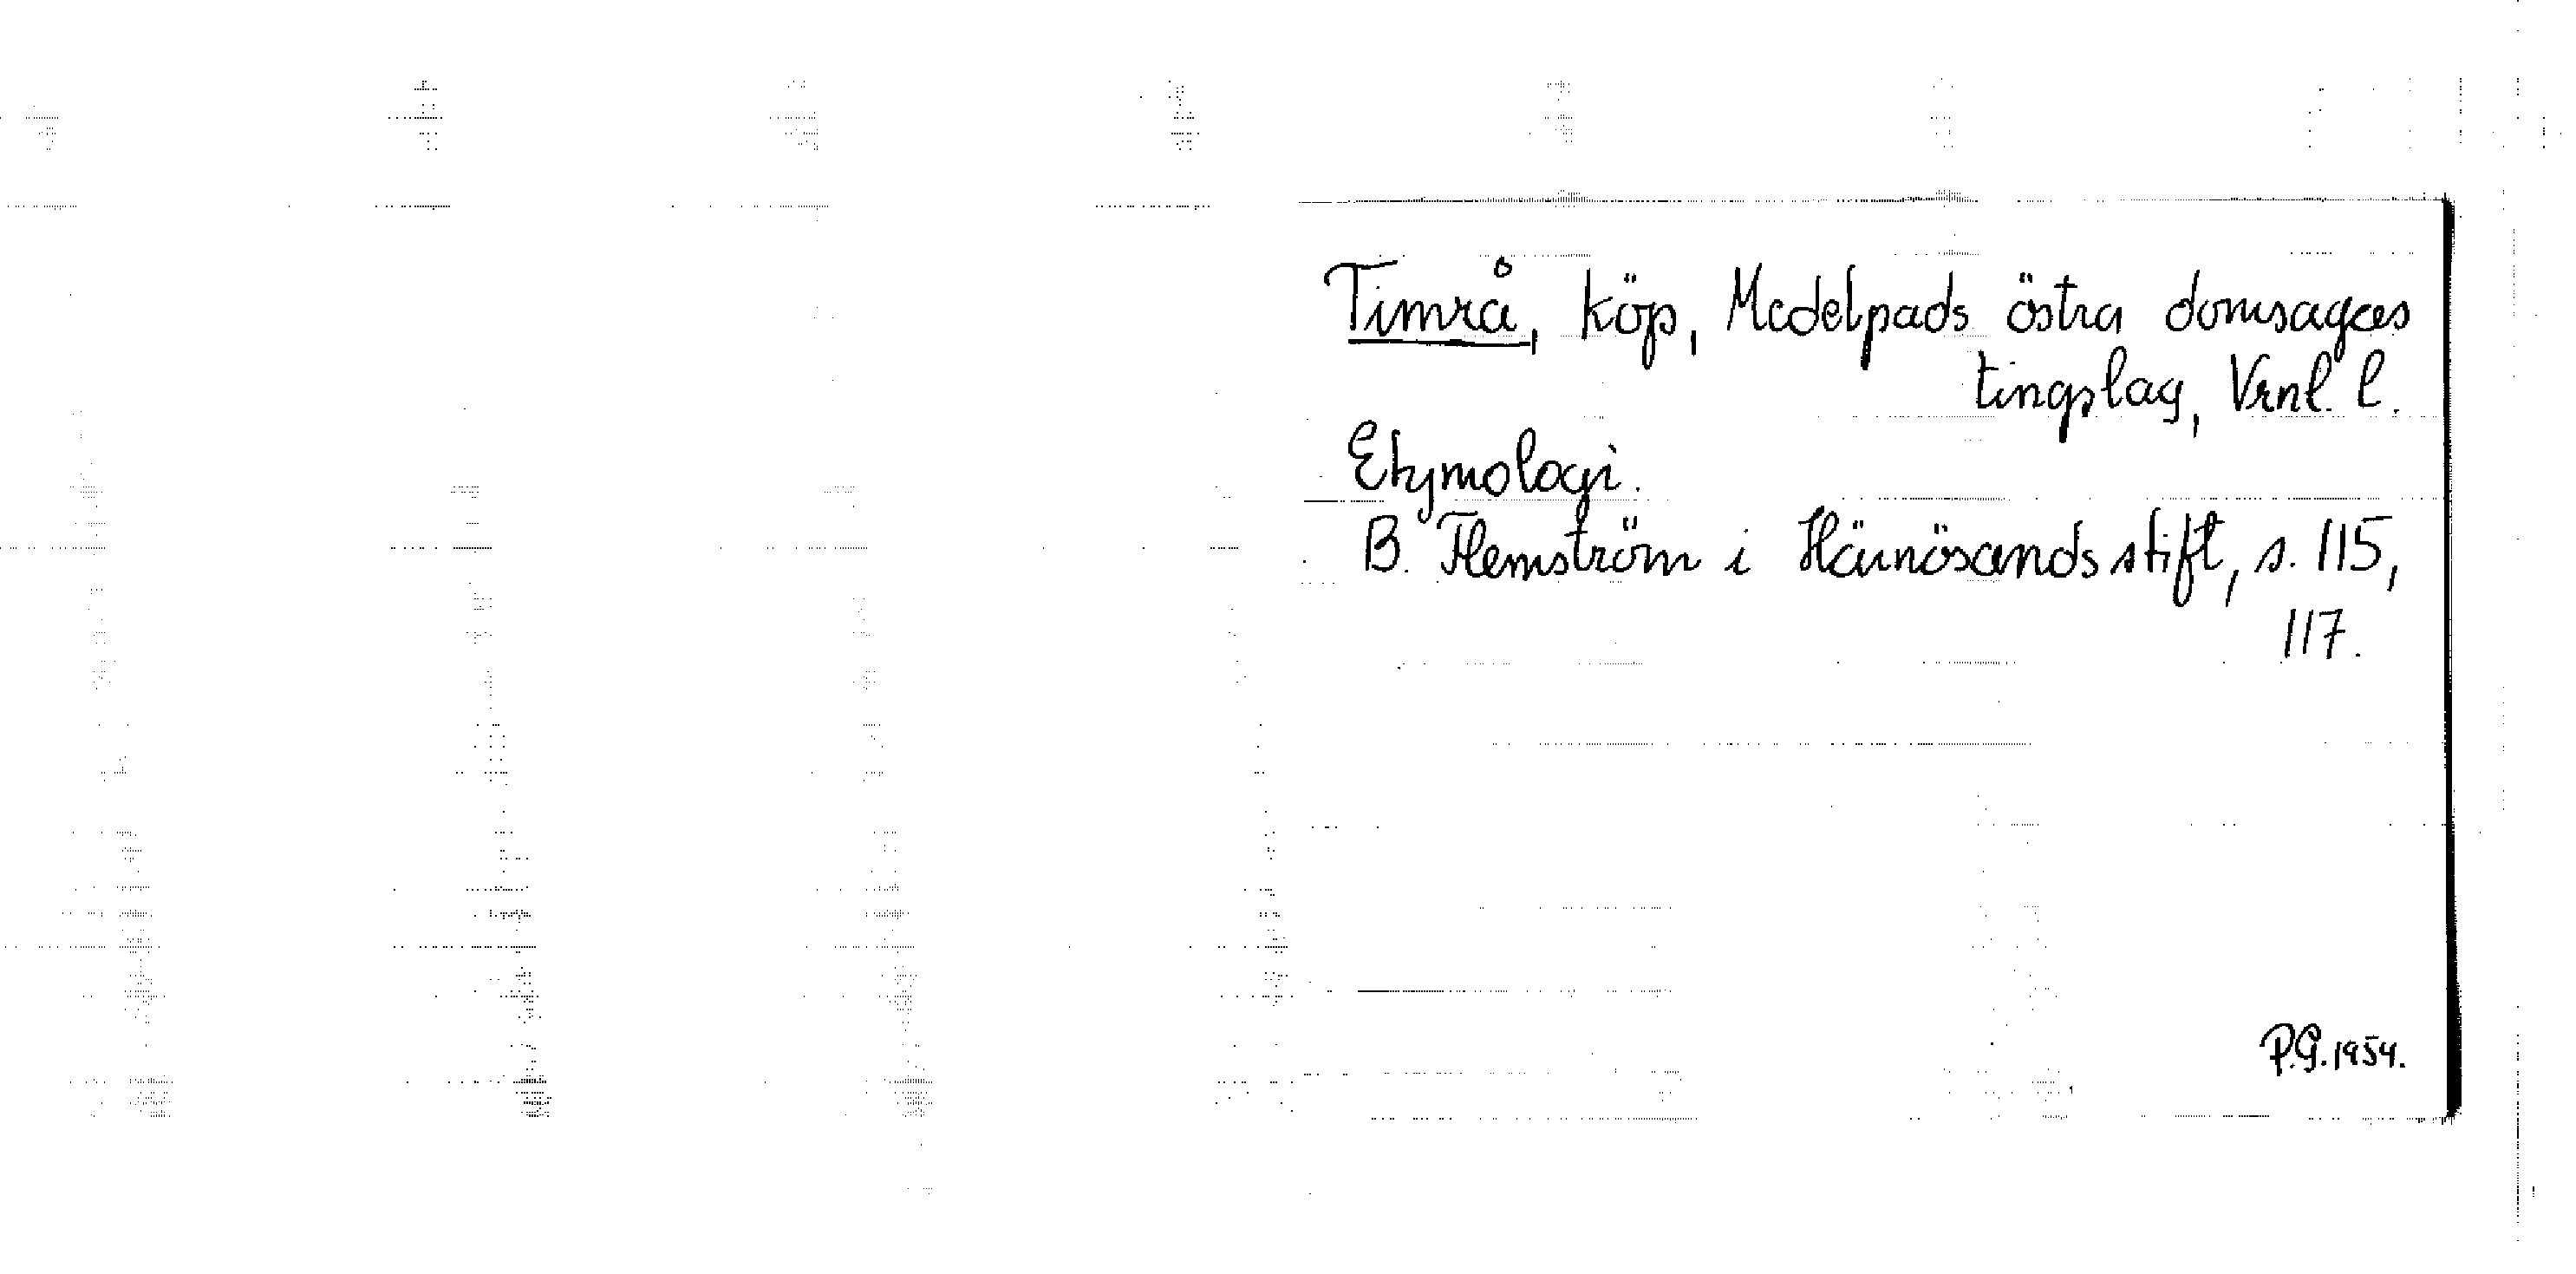 Timrå, köp, Medelpads östra domsagas
tingslag, Vrnl. l.
Etymologi.
B. Flemström i Härnösands stift, s. 115,
117.
P.G. 1954.